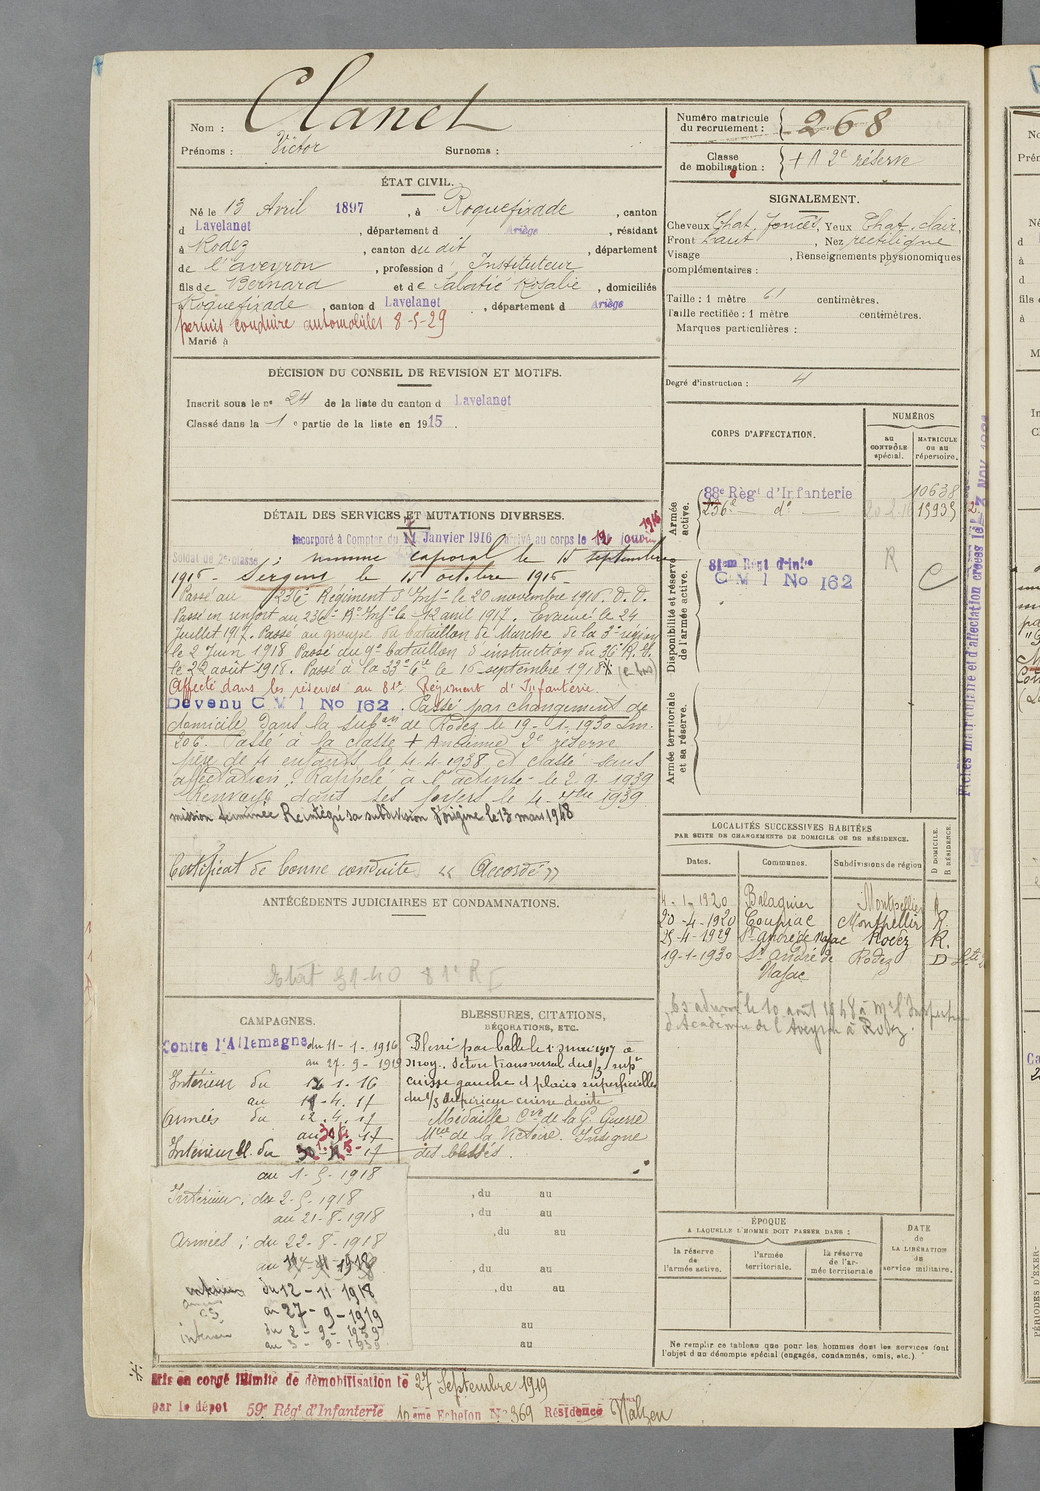 Nom : Clanet
Prénoms : Victor Surnoms :
Numéro matricule du recrutement : 268
Classe de mobilisation : + A 2e réserve
ÉTAT CIVIL.
Né le 13 Avril 1897, à Roquefixade, canton
d Lavelanet, département d Ariège, résidant
à Rodez, canton du dit, département
de l'aveyron, profession d Instituteur
fils de Bernard et de Salatié Rosalie, domiciliés
Roquefixade, canton d Lavelanet, département d Ariège
permis conduire automobiles 8-5-29
Marié à
SIGNALEMENT.
Cheveux Chat. foncés. Yeux Chat. clair.
Front haut, Nez rectiligne
Visage , Renseignements physionomiques
complémentaires :
Taille : 1 mètre 61 centimètres.
Taille rectifiée : 1 mètre centimètres.
Marques particulières :
Degré d'instruction : 4
DÉCISION DU CONSEIL DE REVISION ET MOTIFS.
Inscrit sous le no 24 de la liste du canton d Lavelanet
Classé dans la 1e partie de la liste en 1915.
CORPS D'AFFECTATION.
NUMÉROS
au contrôle spécial.
matricule ou au répertoire.
Armée active.
88e Régt d'Infanterie 10638
236e do 15939
Disponibilité et réserve de l'armée active.
81eme Regt d'infie
C M I No 162
Armée territoriale et sa réserve.
Fiches matriculaire et d'affectation créées le
DÉTAIL DES SERVICES ET MUTATIONS DIVERSES.
Incorporé à Compter du 11 Janvier 1916 arrivé au corps le 12 janvier 1916
Soldat de 2e classe ; nommé caporal le 15 septembre
1916 - Sergent le 15 octobre 1916 -
Passé au 236e Régiment d'Infie le 20 novembre 1916. D. D.
Passé en renfort au 236e Rt Infie le 12 avril 1917. Evacué le 24
Juillet 1917. Passé au groupe du bataillon de Marche de la 3e région
le 2 Juin 1918 Passé du 9e bataillon d'instruction du 36e R.I.
le 22 août 1918. Passé à la 33e Cie le 16 septembre 1918
Affecté dans les réserves au 81e Régiment d'Infanterie.
Devenu C M I No 162. Passé par changement de
domicile dans la subdon de Rodez le 19-1-1930
206. Passé à la classe + Ancienne 2e réserve
père de 4 enfants le 4-4-1938 et classé sans
affectation. Rappelé à l'activité le 2.9.1939
Renvoyé dans ses foyers le 4 - 1939
mission terminée Réintégré sa subdivision d'origine le 13 mars 1948
Certificat de bonne conduite « Accordé »
ANTÉCÉDENTS JUDICIAIRES ET CONDAMNATIONS.
LOCALITÉS SUCCESSIVES HABITÉES
PAR SUITE DE CHANGEMENTS DE DOMICILE OU DE RÉSIDENCE.
Dates. Communes. Subdivisions de région D. DOMICILE. R. RÉSIDENCE.
4-1-1920 Balaguier Montpellier R
20-4-1920 Coupiac Montpellier R
25-4-1929 St André de Najac Rodez R.
19-1-1930 St André de Najac Rodez D
le 10 août 1948 à Mr l'Inspecteur
d'Académie de l'Aveyron à Rodez.
CAMPAGNES.
Contre l'Allemagne du 11-1-1916
au 27-9-1919
Intérieur du 11.1.16
au 11.4.17
Armées du 12.4.17
Intérieur
au 1-5-1918
Intérieur : du 2-5-1918
au 21-8-1918
Armées : du 22-8-1918
au 11-11-1918
intérieur du 12-11-1918
au 27-9-1919
intérieur du 2-9-1939
au 3-9-1939
BLESSURES, CITATIONS,
DÉCORATIONS, ETC.
Blessé par balle le 1er mai 1917 à
Moy. Séton transversal du 1/3 supr
cuisse gauche et plaies superficielles
du 1/3 supérieur cuisse droite
Médaille Cve de la G. Guerre
Mlle de la Victoire. Insigne
des blessés.
, du au
, du au
, du au
, du au
, du au
au
au
ÉPOQUE
A LAQUELLE L'HOMME DOIT PASSER DANS :
la réserve de l'armée active.
l'armée territoriale.
la réserve de l'armée territoriale
DATE de LA LIBÉRATION du service militaire.
Ne remplir ce tableau que pour les hommes dont les services font
l'objet d'un décompte spécial (engagés, condamnés, omis, etc.).
Mis en congé illimité de démobilisation le 27 Septembre 1919
par le dépot 59e Régt d'Infanterie 10eme Echelon No 369 Résidence Nalzen